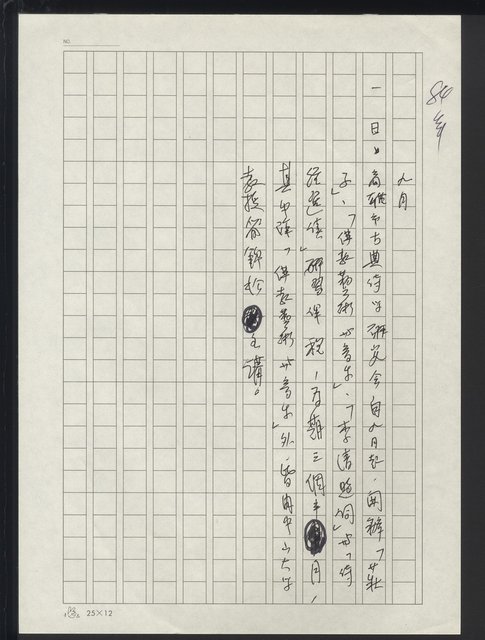 NO.
84年
九月
一日、高雄市古典詩學研究會自九月起，開辦「莊
子」、「佛教藝術與音樂」、「李清照詞」與「詩
經選讀」研習課程，為期三個半月，
其中除「佛教藝術與音樂」外，皆由中山大學
教授簡錦松主講。
25×12